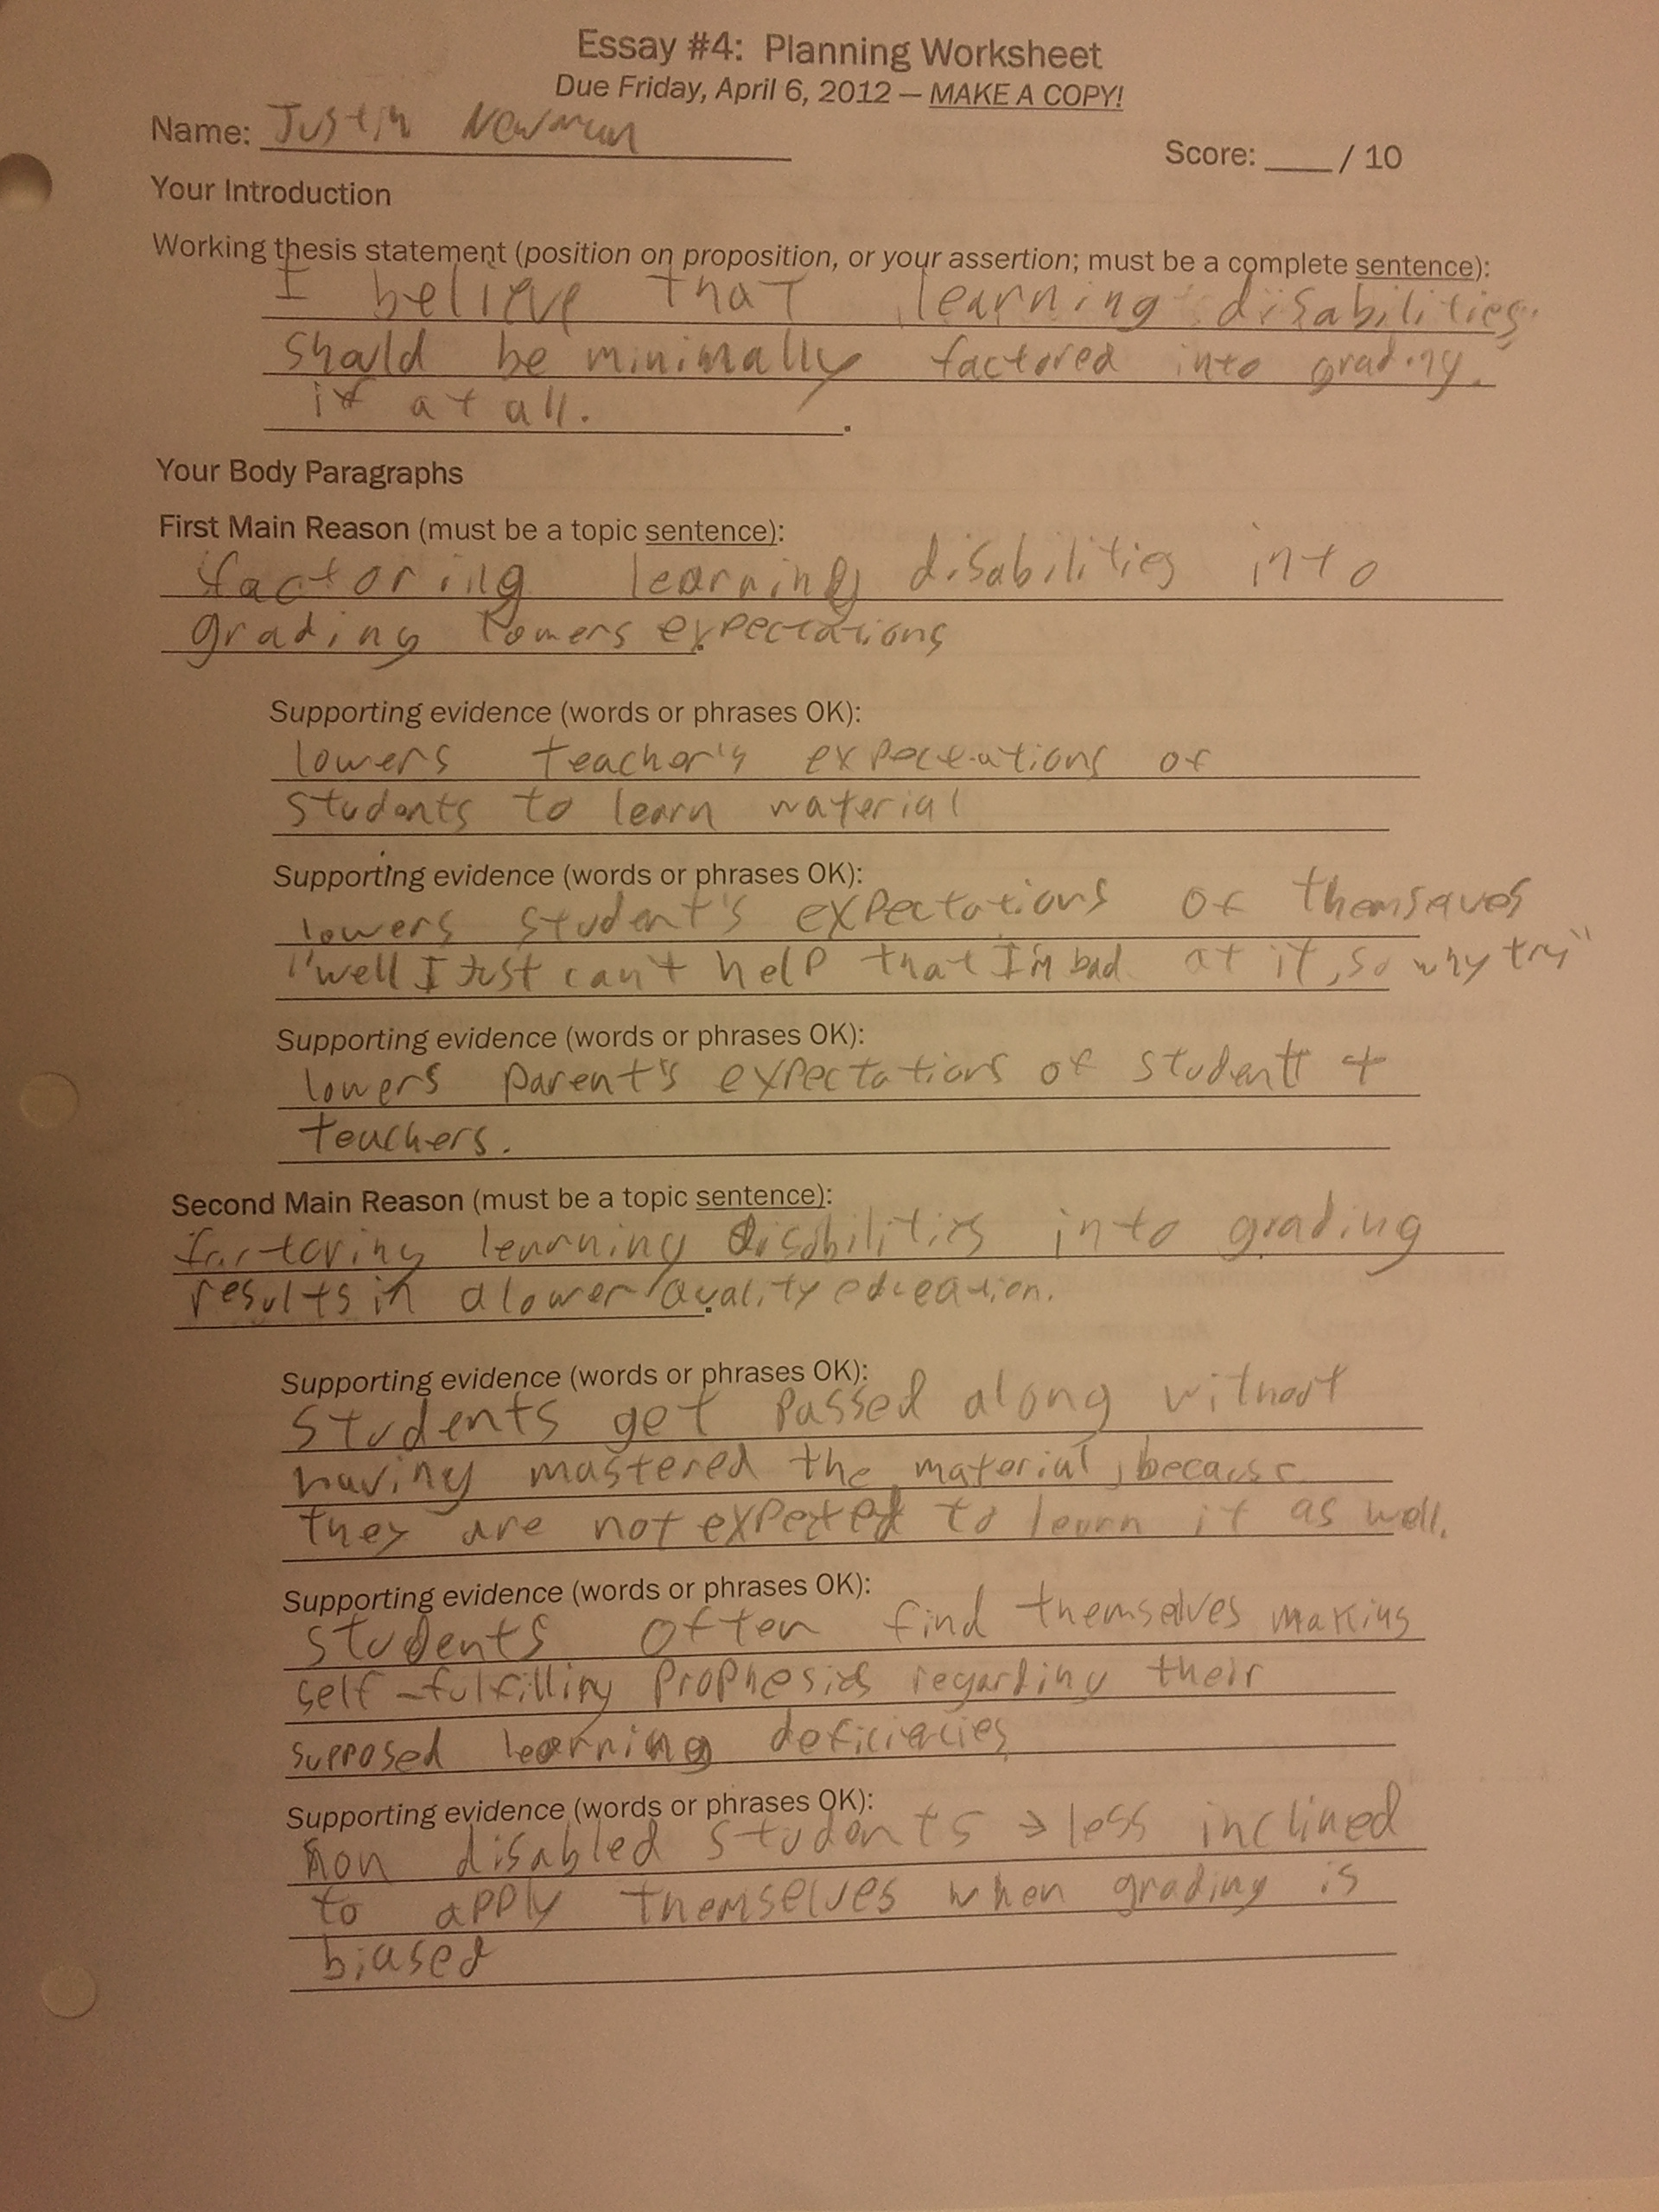 Essay #4: Planning Worksheet
Due Friday, April 6, 2012 – MAKE A COPY!
Name: Justin Newman
Score: ____ / 10
Your Introduction
Working thesis statement (position on proposition, or your assertion; must be a complete sentence):
I believe that learning disabilities
should be minimally factored into grading,
if at all.
Your Body Paragraphs
First Main Reason (must be a topic sentence):
factoring learning disabilities into
grading lowers expectations.
Supporting evidence (words or phrases OK):
lowers teacher's expectations of
students to learn material
Supporting evidence (words or phrases OK):
lowers student's expectations of themseves
"well I just can't help that I'm bad at it, so why try"
Supporting evidence (words or phrases OK):
lowers parent's expectations of student +
teachers.
Second Main Reason (must be a topic sentence):
factoring learning disabilities into grading
results in a lower quality education.
Supporting evidence (words or phrases OK):
students get passed along without
having mastered the material, because
they are not expected to learn it as well.
Supporting evidence (words or phrases OK):
students often find themselves making
self-fulfilling prophesies regarding their
supposed learning deficiecies
Supporting evidence (words or phrases OK):
non disabled students → less inclined
to apply themselves when grading is
biased